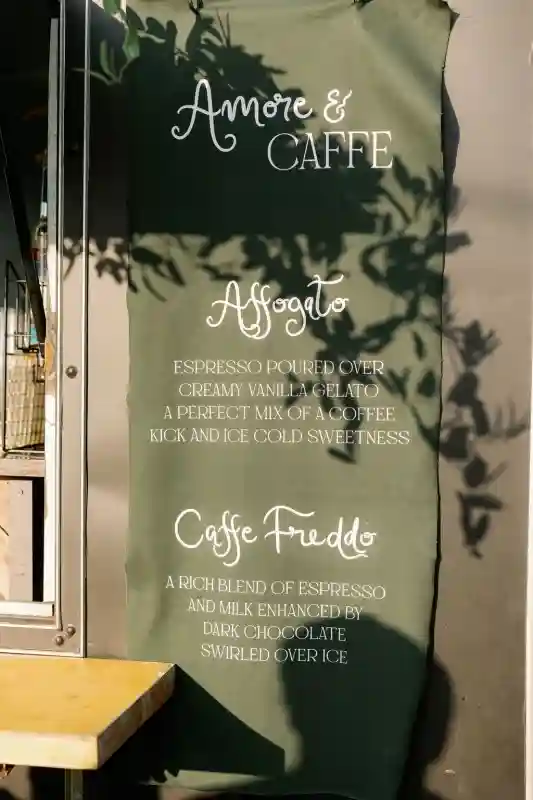 Amore &
CAFFE
Affogato
ESPRESSO POURED OVER
CREAMY VANILLA GELATO
A PERFECT MIX OF A COFFEE
KICK AND ICE COLD SWEETNESS
Caffe Freddo
A RICH BLEND OF ESPRESSO
AND MILK ENHANCED BY
DARK CHOCOLATE
SWIRLED OVER ICE